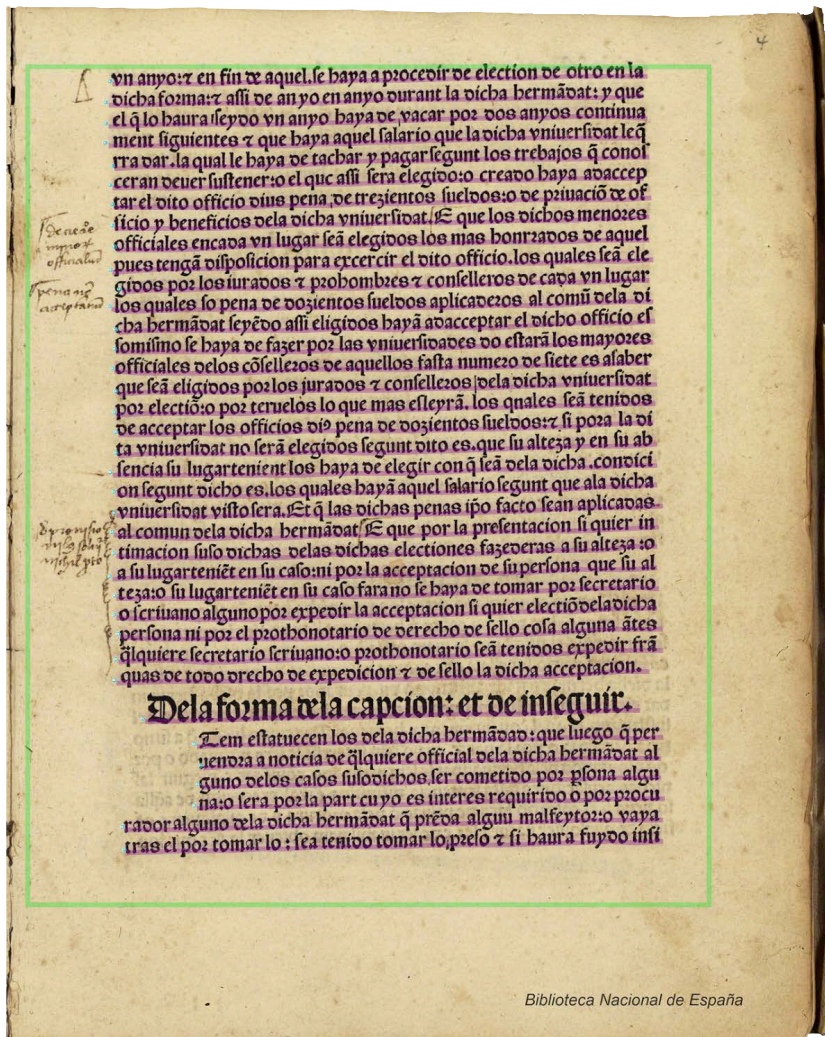 4
vn anyo:⁊ en fin de aquel.se haya a procedir de election de otro en la
dicha forma:⁊ assi de an yo en anyo durant la dicha hermãdat: y que
el q̃ lo haura seydo vn anyo haya de vacar por dos anyos continua
ment siguientes ⁊ que haya aquel salario que la dicha vniuersidat leq̃
rra dar.la qual le haya de tachar y pagar segunt los trebajos q̃ conos
ceran deuer sustener:o el que assi sera elegido:o creado haya adaccep
tar el dito officio dius pena de trezientos sueldos:o de priuaciõ de of
ficio y beneficios dela dicha vniuersidat. E que los dichos menores
officiales encada vn lugar seã elegidos los mas honrrados de aquel
pues tengã disposicion para excercir el dito officio.los quales seã ele
gidos por los iurados ⁊ prohombres ⁊ conselleros de cada vn lugar
los quales so pena de dozientos sueldos aplicaderos al comũ dela di
cha hermãdat seyẽdo assi eligidos hayã adacceptar el dicho officio es
somismo se haya de fazer por las vniuersidades do estarã los mayores
officiales delos cõselleros de aquellos fasta numero de siete es asaber
que seã eligidos por los jurados ⁊ conselleros dela dicha vniuersidat
por electiõ:o por teruelos lo que mas esleyrã. los quales seã tenidos
de acceptar los officios diꝰ pena de dozientos sueldos:⁊ si pora la di
ta vniuersidat no serã elegidos segunt dito es.que su alteza y en su ab
sencia su lugartenient los haya de elegir con q̃ seã dela dicha .condici
on segunt dicho es.los quales hayã aquel salario segunt que ala dicha
vniuersidat visto sera. Et q̃ las dichas penas ip̃o facto sean aplicadas
al comun dela dicha hermãdat E que por la presentacion si quier in
timacion suso dichas delas dichas electiones fazederas a su alteza :o
a su lugarteniẽt en su caso:ni por la acceptacion de su persona que su al
teza:o su lugarteniẽt en su caso fara no se haya de tomar por secretario
o scriuano alguno por expedir la acceptacion si quier electiõ dela dicha
persona ni por el prothonotario de derecho de sello cosa alguna ãtes
q̃lquiere secretario scriuano:o prothonotario seã tenidos expedir frã
quas de todo drecho de expedicion ⁊ de sello la dicha acceptacion.
Dela forma dela capcion: et de inseguir.
Item estatuecen los dela dicha hermãdad : que luego q̃ per
uendra a noticia de q̃lquiere official dela dicha hermãdat al
guno delos casos susodichos.ser cometido por p̱sona algu
na:o sera por la part cuyo es interes requirido o por procu
rador alguno dela dicha hermãdat q̃ prẽda alguu malfeytor:o vaya
tras el por tomar lo : sea tenido tomar lo preso ⁊ si haura fuydo insi
Biblioteca Nacional de España